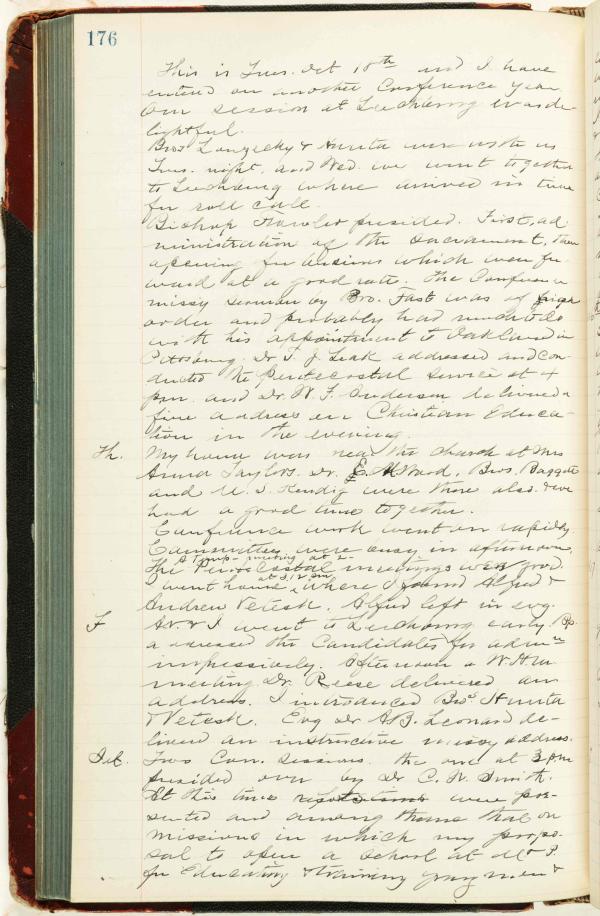 176
This is Tues. Oct 18th and I have
entered on another Conference year.
Our session at Leechburg was de-
lightful.
Bros & Hruta were with us
Tues. night, and Wed. we went together
to Leechburg where arrived in time
for roll call.
Bishop Fowler presided. First, ad-
ministration of the sacrament, then
opening for business which went for-
ward at a good rate. The Conference
missy sermon by Bro. Fast was of high
order and probably had much to do
with his appointment to Oakland in
Pittsburg. Dr T. J. Leak addressed and con-
ducted the Pentecostal service at 4
p.m. and Dr. W. F. Anderson delivered a
fine address on Christian Educa-
tion in the evening.
Th. My home was near the church at Mrs
Anna Taylors. Dr. Ward, Bros. Baggott
and were there also & we
had a good time together.
Conference work went on rapidly
Committees were busy in afternoon.
A Temp- meeting at 2-
The Pentecostal meetings were good.
at 5.12 pm
I went home where I found Alfred &
Andrew Vetesk. Alfred left in evg.
F A.V. & I went to Leechburg early. Bp.
addressed the Candidates for admn
impressively. Afternoon a W.H.M.
meeting Dr. Reese delivered an
address. I introduced Bros Hruta
& Vetesk. Evg Dr A.B. Leonard de-
livered an instructive missy address.
Sat. Two Con. sessions. the one at 3 pm
presided over by Dr C. W. Smith.
At this time were pre-
sented and among them that on
missions in which my propo-
sal to open a school at Mt P.
for Educating & training young men &